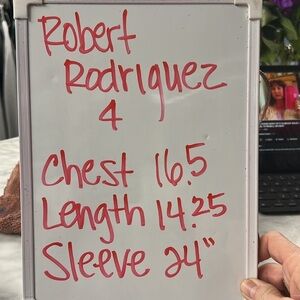 Robert
Rodriguez
4
Chest 16.5
Length 14.25
Sleeve 24"